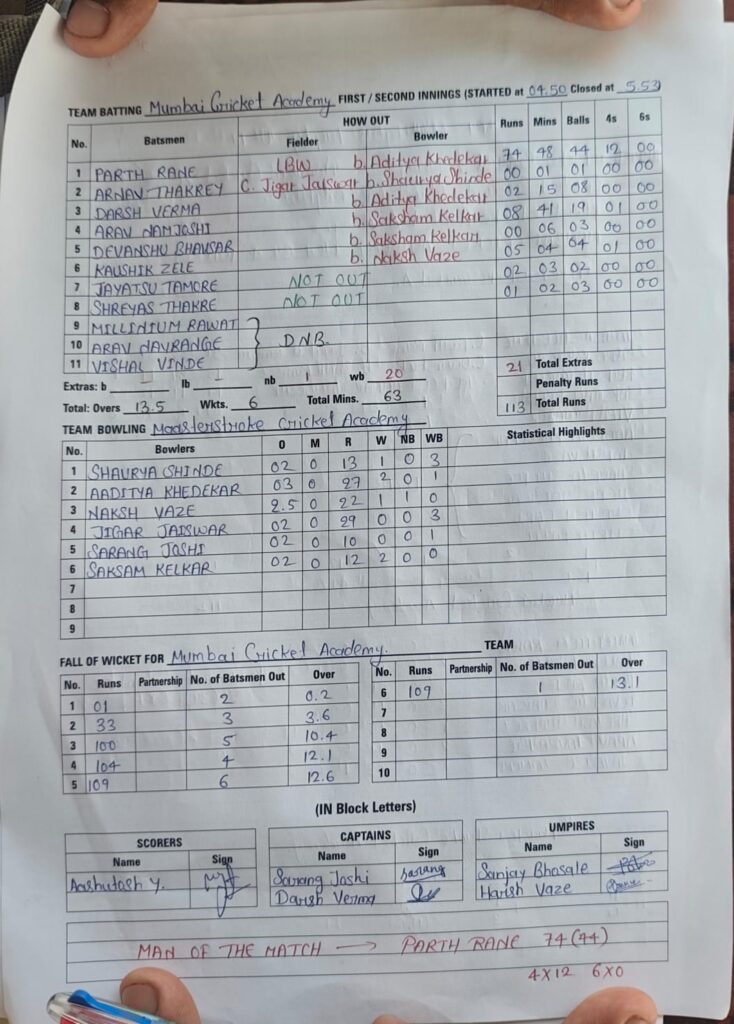 TEAM BATTING Mumbai Cricket Academy FIRST / SECOND INNINGS (STARTED at 04.50 Closed at 5.53)
No. Batsmen HOW OUT Runs Mins Balls 4s 6s
Fielder Bowler
1 PARTH RANE LBW b. Aditya Khedekar 74 48 44 12 00
2 ARNAV THAKREY C. Jigar Jaiswar b. Shaurya Shinde 00 01 01 00 00
3 DARSH VERMA b. Aditya Khedekar 02 15 08 00 00
4 ARAV NAMJOSHI b. Saksham Kelkar 08 41 19 01 00
5 DEVANSHU BHAVSAR b. Saksham Kelkar 00 06 03 00 00
6 KAUSHIK ZELE b. Naksh Vaze 05 04 04 01 00
7 JAYATSU TAMORE NOT OUT 02 03 02 00 00
8 SHREYAS THAKRE NOT OUT 01 02 03 00 00
9 MILLINIUM RAWAT
10 ARAV NAVRANGE DNB.
11 VISHAL VINDE
Extras: b - lb - nb 1 wb 20 21 Total Extras
Penalty Runs
Total: Overs 13.5 Wkts. 6 Total Mins. 63 113 Total Runs
TEAM BOWLING Maasterstroke Cricket Academy
No. Bowlers O M R W NB WB Statistical Highlights
1 SHAURYA SHINDE 02 0 13 1 0 3
2 AADITYA KHEDEKAR 03 0 27 2 0 1
3 NAKSH VAZE 2.5 0 22 1 1 0
4 JIGAR JAISWAR 02 0 29 0 0 3
5 SARANG JOSHI 02 0 10 0 0 1
6 SAKSAM KELKAR 02 0 12 2 0 0
7
8
9
FALL OF WICKET FOR Mumbai Cricket Academy. TEAM
No. Runs Partnership No. of Batsmen Out Over No. Runs Partnership No. of Batsmen Out Over
1 01 2 0.2 6 109 1 13.1
2 33 3 3.6 7
3 100 5 10.4 8
4 104 4 12.1 9
5 109 6 12.6 10
(IN Block Letters)
SCORERS CAPTAINS UMPIRES
Name Sign Name Sign Name Sign
Aashutosh Y. Sarang Joshi Sarang Sanjay Bhosale
Darsh Verma Harish Vaze
MAN OF THE MATCH → PARTH RANE 74 (44)
4X12 6X0